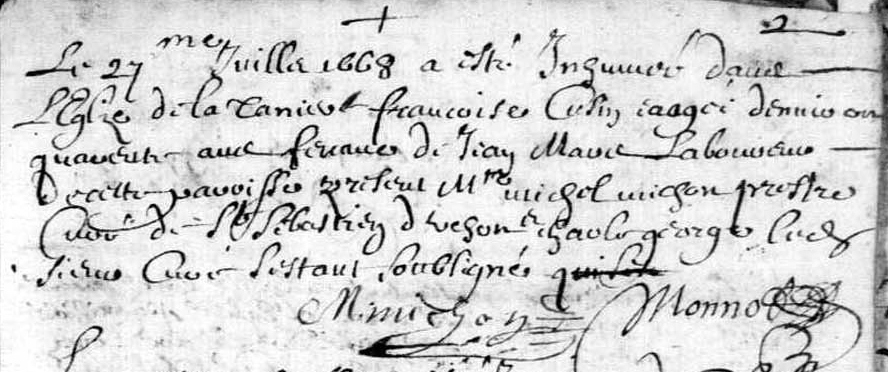 2
Le 27 me Juille 1668 a esté Inhumée dans
L'Eglise de la Françoise Cusin aagée denviron
quarente ans femme de Jean Marie Laboureur
De cette parroisse present Mre michel michon prestre
Curé de St Sebastien et charle george
sieur Curé sestant soubsigné
M michon Monnot